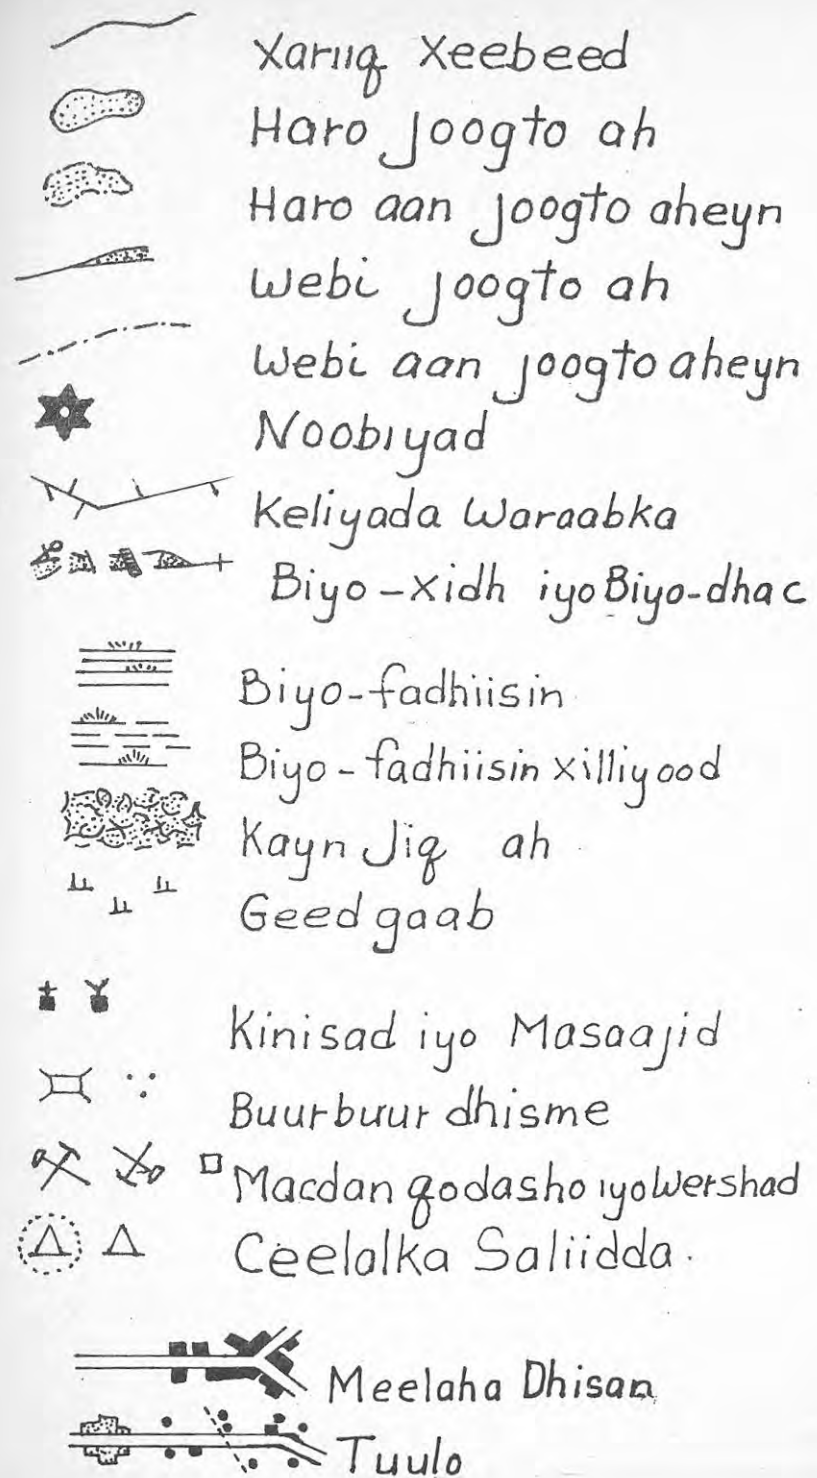 Xariiq Xeebeed
Haro Joogto ah
Haro aan Joogto aheyn
Webi Joogto ah
Webi aan Joogto aheyn
Noobiyad
Keliyada Waraabka
Biyo-Xidh iyo Biyo-dhac
Biyo-fadhiisin
Biyo-fadhiisin xilliyood
Kayn Jiq ah
Geed gaab
Kinisad iyo Masaajid
Buurbuur dhisme
Macdan qodasho iyo Wershad
Ceelalka Saliidda.
Meelaha Dhisan
Tuulo